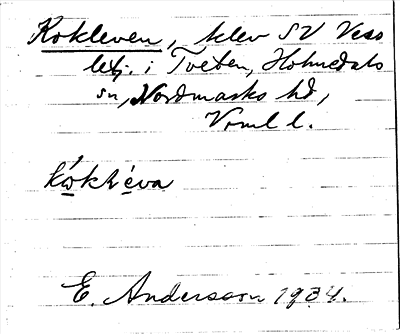 Kokleven, klev SV Vess
letj. i Tveten, Holmedals
sn, Nordmarks hd,
Vrml l.
E. Andersson 1934.